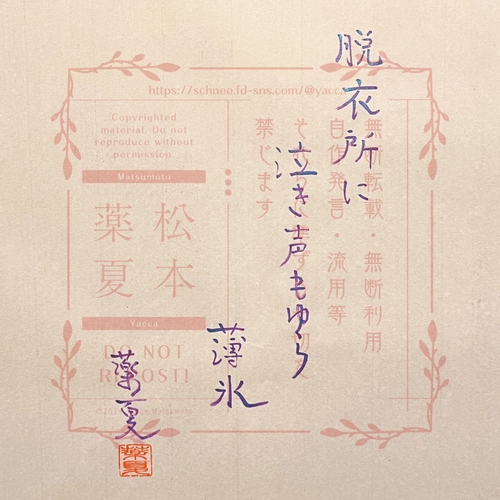 脱衣所に
泣き声もゆら
薄氷
薬夏
薬夏
https://schnee.fd-sns.com/@yacca
無断転載・無断利用
自作発言・流用等
禁じます
Copyrighted
material. Do not
reproduce without
permission.
Matsumoto
松本
薬夏
Yacca
DO NOT
REPOST!